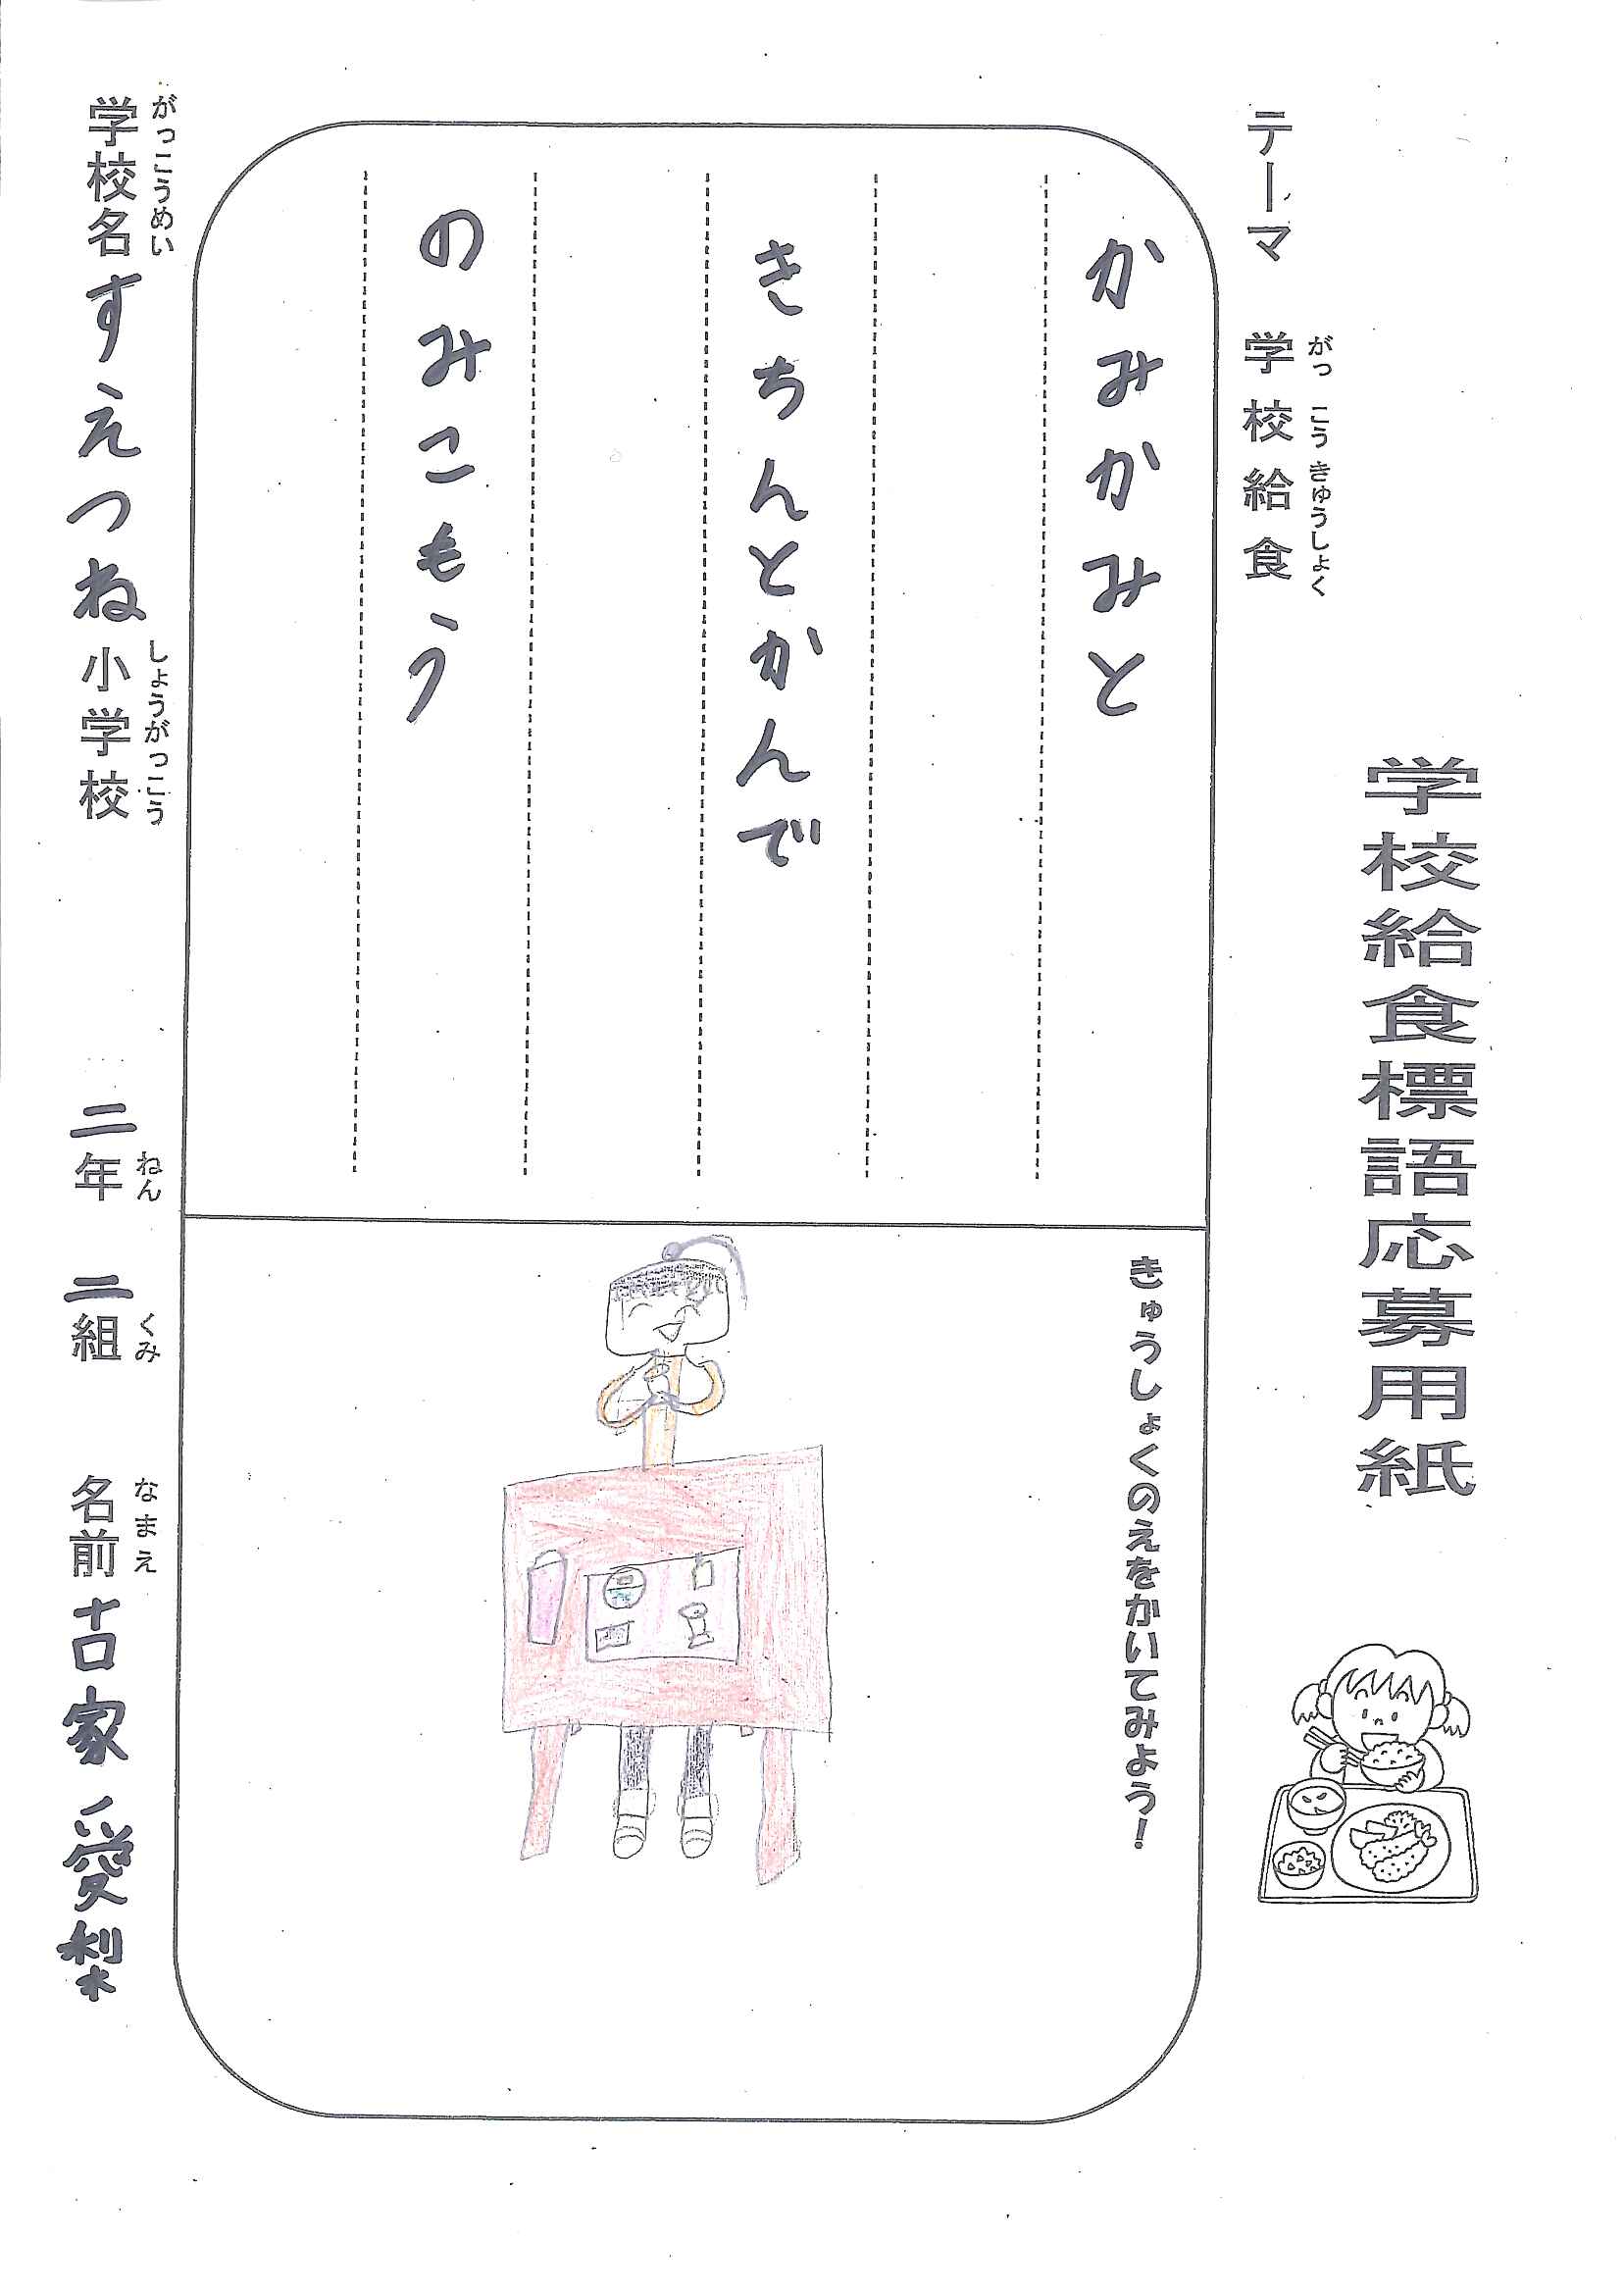 学校給食標語応募用紙
テーマ 学校給食
がっこうきゅうしょく
かみかみと
きちんとかんで
のみこもう
きゅうしょくのえをかいてみよう！
がっこうめい しょうがっこう ねん くみ なまえ
学校名 すえつね小学校 二年 二組 名前 古家 愛梨